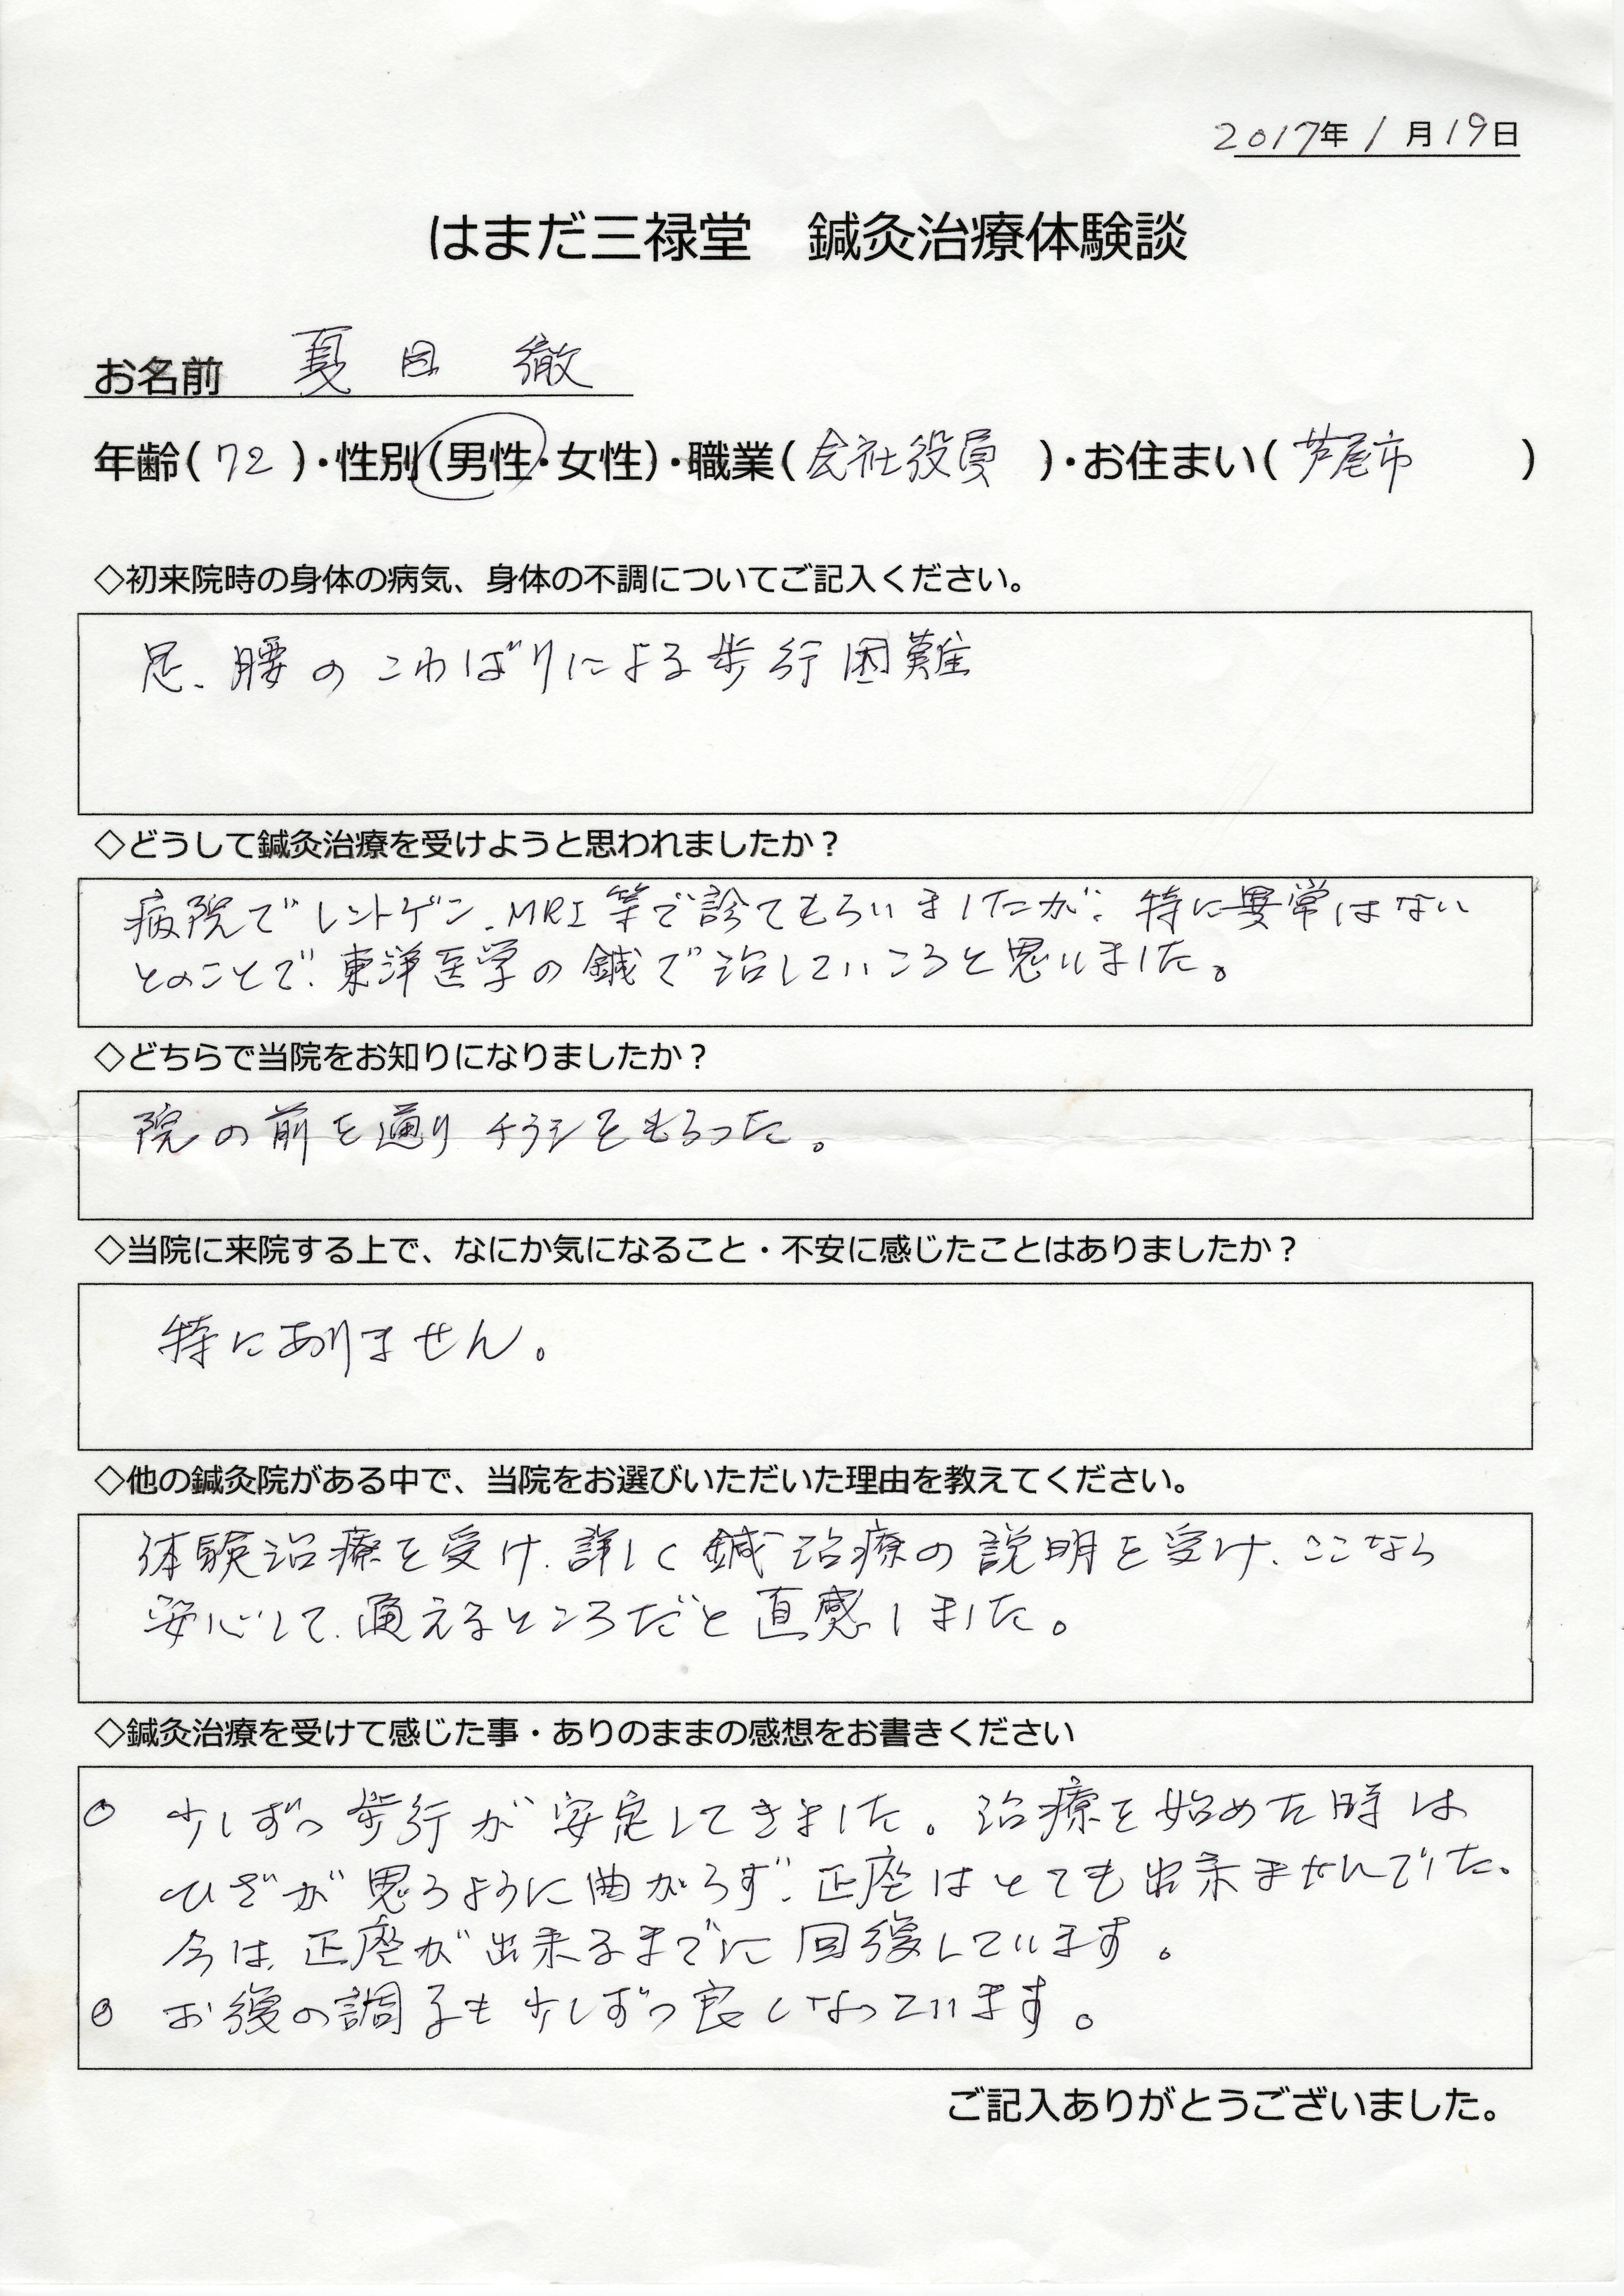 2017年 1月19日
はまだ三禄堂 鍼灸治療体験談
お名前 夏目 徹
年齢(72)・性別(男性・女性)・職業(会社役員)・お住まい(芦屋市)
◇初来院時の身体の病気、身体の不調についてご記入ください。
足、腰のこわばりによる歩行困難
◇どうして鍼灸治療を受けようと思われましたか?
病院でレントゲン、MRI等で診てもらいましたが、特に異常はない
とのことで、東洋医学の鍼で治していこうと思いました。
◇どちらで当院をお知りになりましたか?
院の前を通りチラシをもらった。
◇当院に来院する上で、なにか気になること・不安に感じたことはありましたか?
特にありません。
◇他の鍼灸院がある中で、当院をお選びいただいた理由を教えてください。
体験治療を受け、詳しく鍼治療の説明を受け、ここなら
安心して、通えるところだと直感しました。
◇鍼灸治療を受けて感じた事・ありのままの感想をお書きください
○ 少しずつ歩行が安定してきました。治療を始めた時は
ひざが思うように曲がらず、正座はとても出来ませんでした。
今は、正座が出来るまでに回復しています。
○ お腹の調子も少しずつ良くなっています。
ご記入ありがとうございました。